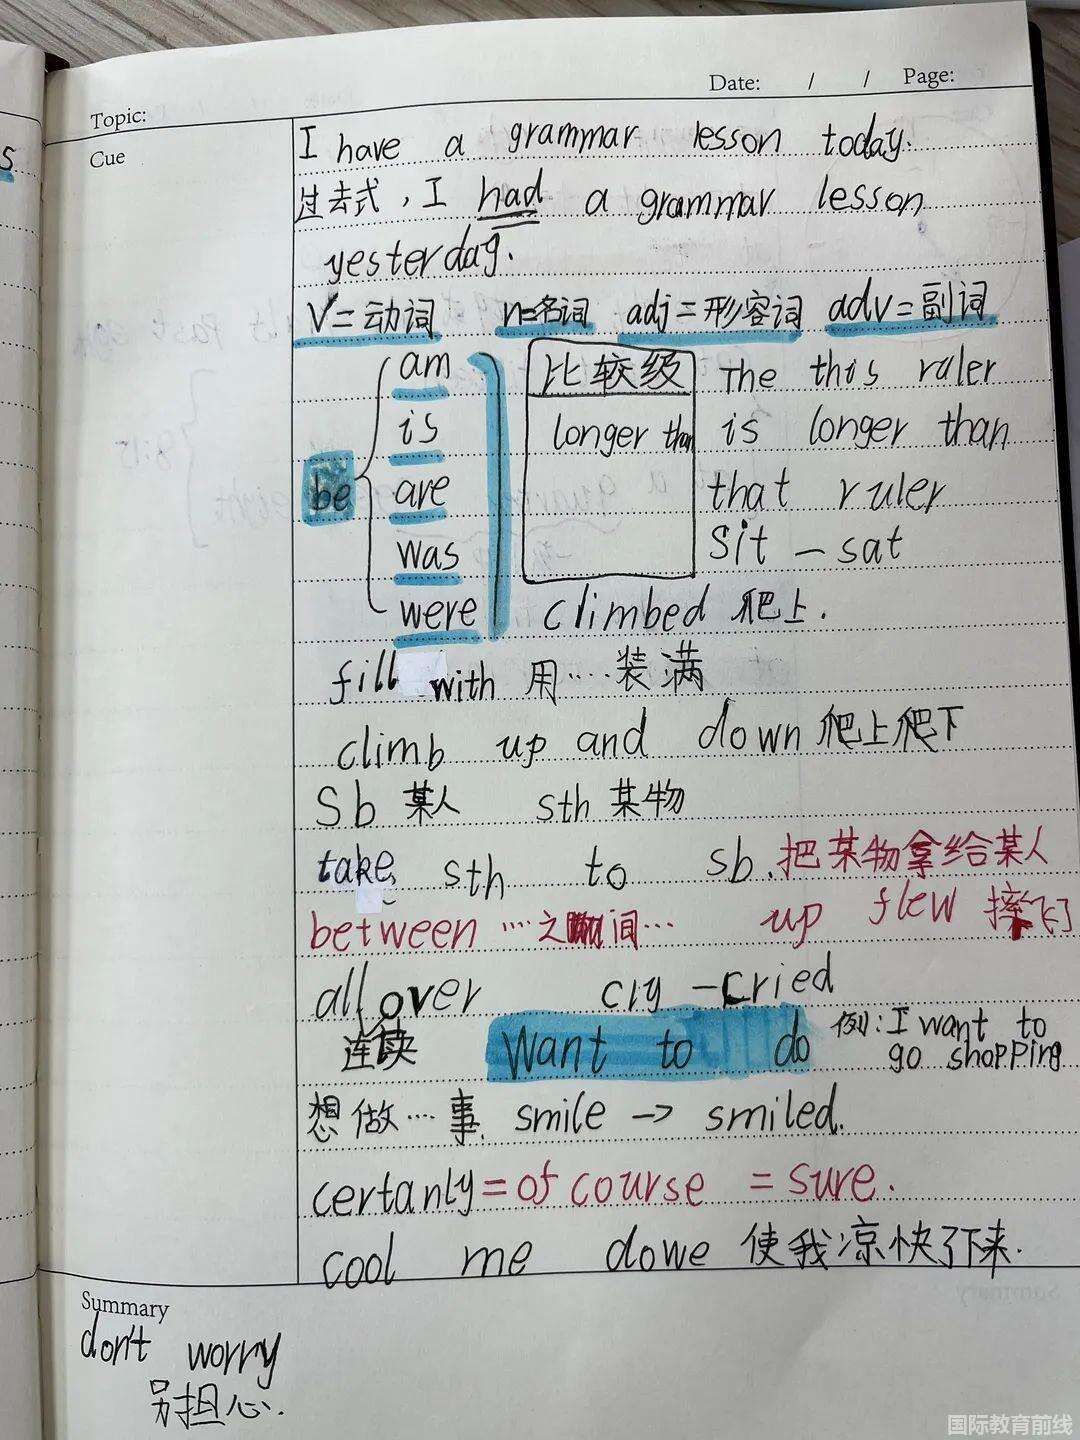 Date: / / Page:
Topic:
Cue
s
I have a grammar lesson today.
过去式，I had a grammar lesson
yesterday.
V=动词 n=名词 adj=形容词 adv=副词
be
am
is
are
was
were
比较级
longer than
The this ruler
is longer than
that ruler
Sit - sat
climbed 爬上.
fill with 用……装满
climb up and down 爬上爬下
Sb 某人 sth 某物
take sth to sb.把某物拿给某人
between ……之间… up flew 摔飞了
all over cry - cried
连读 Want to do 例:I want to
go shopping
想做……事. smile → smiled.
certanly=of course = sure.
cool me dowe 使我凉快了下来.
Summary
don't worry
别担心.
国际教育前线